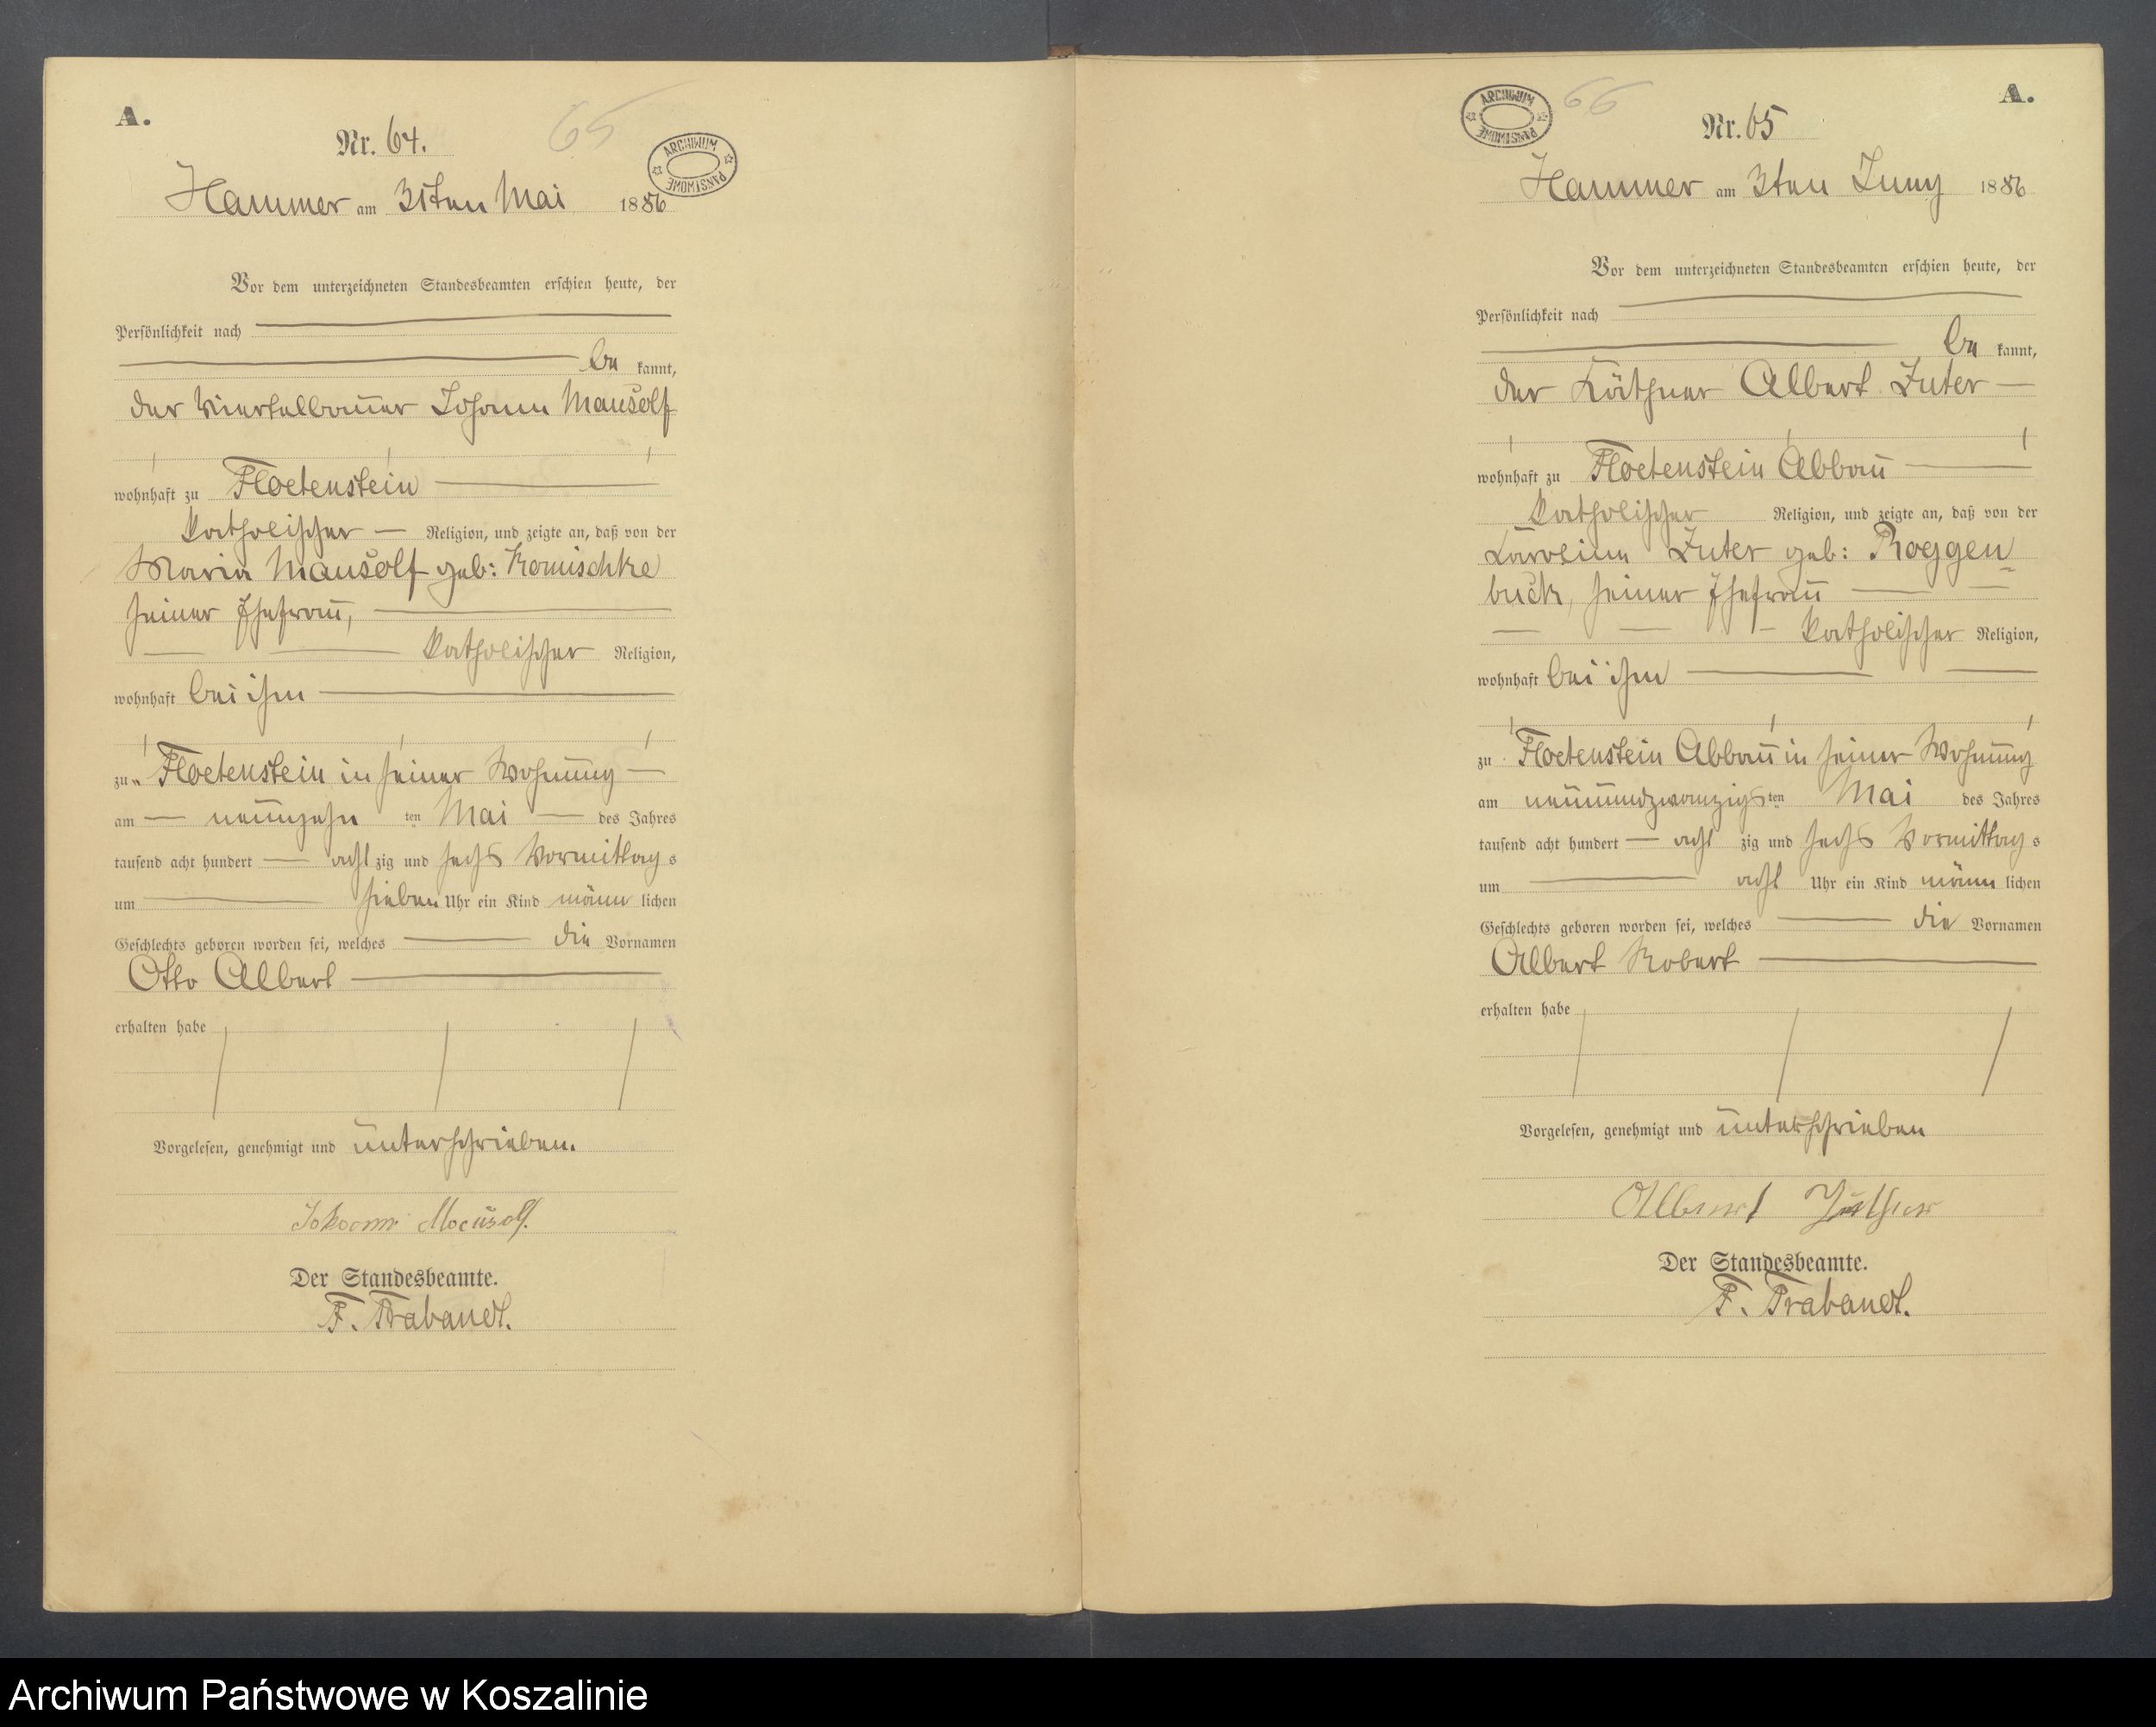 A.
Nr. 64.
65
ARCHIWUM PAŃSTWOWE
Hammer am 31ten Mai 1886
Vor dem unterzeichneten Standesbeamten erschien heute, der
Persönlichkeit nach
be kannt,
der Viertelbauer Johann Mausolf
wohnhaft zu Floetenstein
katholischer Religion, und zeigte an, daß von der
Maria Mausolf geb: Komischke
seiner Ehefrau,
katholischer Religion,
wohnhaft bei ihm
zu Floetenstein in seiner Wohnung
am neunzehn ten Mai des Jahres
tausend acht hundert acht zig und sechs Vormittag s
um sieben Uhr ein Kind männ lichen
Geschlechts geboren worden sei, welches die Vornamen
Otto Albert
erhalten habe
Vorgelesen, genehmigt und unterschrieben.
Johann Mausolf.
Der Standesbeamte.
F. Trabandt.
A.
ARCHIWUM PAŃSTWOWE
66
Nr. 65
Hammer am 3ten Juny 1886
Vor dem unterzeichneten Standesbeamten erschien heute, der
Persönlichkeit nach
be kannt,
der Käthner Albert Juter
wohnhaft zu Floetenstein Abbau
katholischer Religion, und zeigte an, daß von der
Karoline Juter geb: Roggen
buck, seiner Ehefrau
katholischer Religion,
wohnhaft bei ihm
zu Floetenstein Abbau in seiner Wohnung
am neunundzwanzigs ten Mai des Jahres
tausend acht hundert acht zig und sechs Vormittag s
um acht Uhr ein Kind männ lichen
Geschlechts geboren worden sei, welches die Vornamen
Albert Robert
erhalten habe
Vorgelesen, genehmigt und unterschrieben
Albert
Der Standesbeamte.
F. Trabandt.
Archiwum Państwowe w Koszalinie